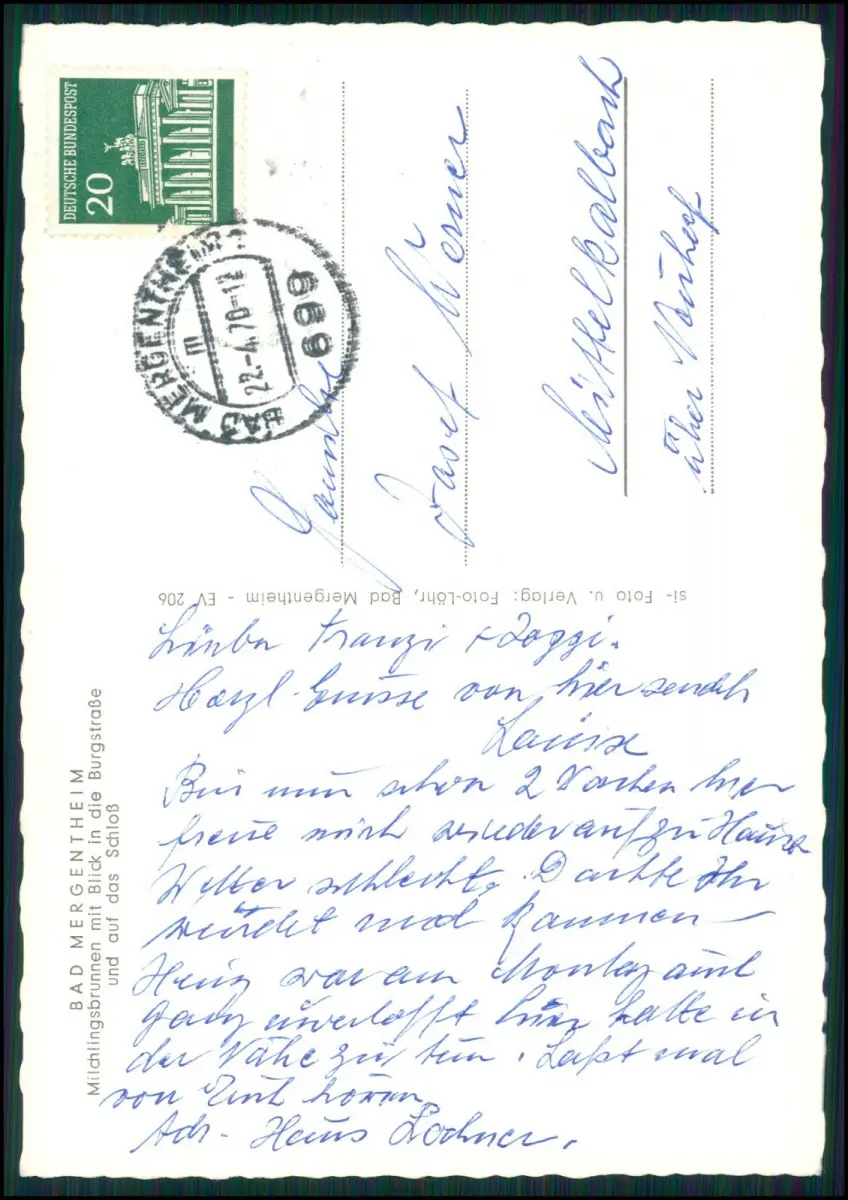 DEUTSCHE BUNDESPOST
20
BAD MERGENTHEIM
22.-4.70-12
m
699
Familie
Josef Werner
Mittelkalbach
über Neuhof
si- Foto u. Verlag: Foto-Löhr, Bad Mergentheim - EV 206
BAD MERGENTHEIM
Milchlingsbrunnen mit Blick in die Burgstraße
und auf das Schloß
Liebe Franzi +
Herzl. Grüsse von hier sendet
Louise
Bin nun schon 2 Wochen hier
freue mich wieder auf zu Hause
Wetter schlecht. Dachte Ihr
würdet mal kommen
Heinz war am Montag auf
ganz unverhofft hier hatte in
der Nähe zu tun. Laßt mal
von Euch hören
Adr- Haus Lochner.